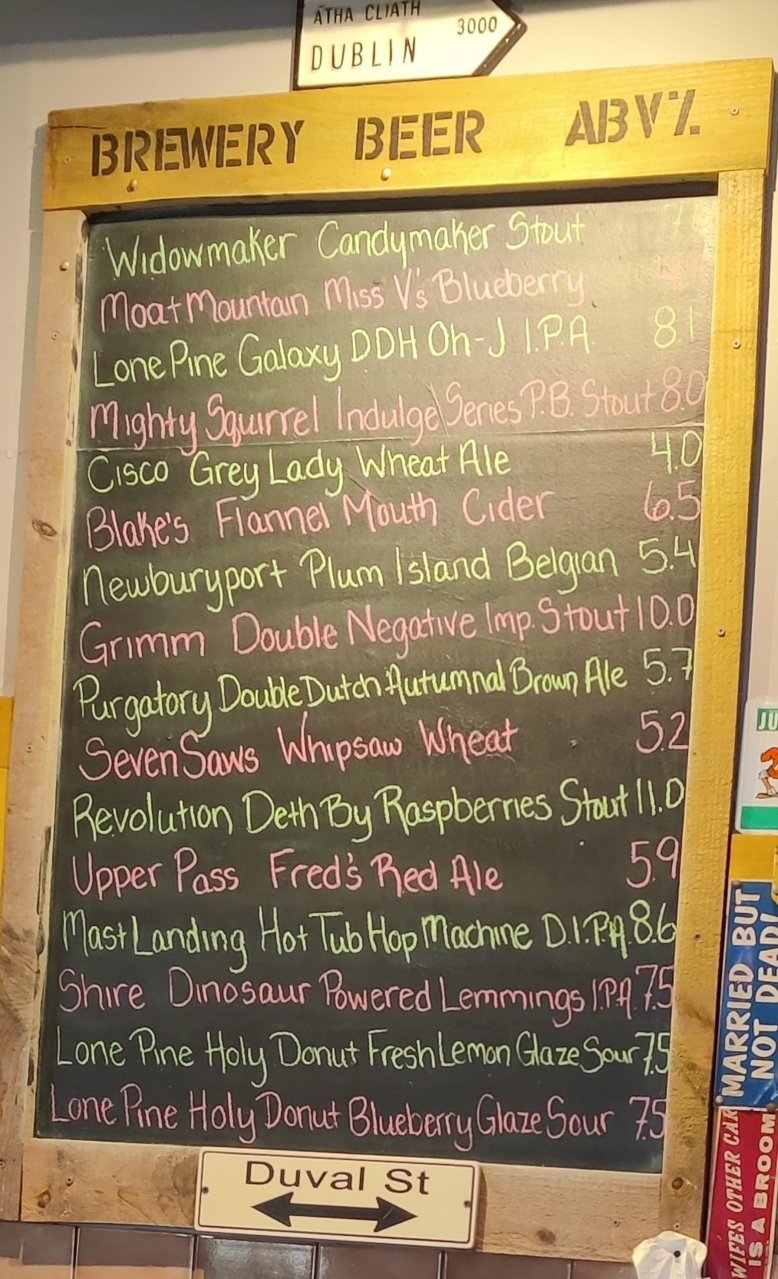 ÁTHA CLIATH
3000
DUBLIN
BREWERY BEER ABV%
Widowmaker Candymaker Stout
Moat Mountain Miss V's Blueberry
Lone Pine Galaxy DDH Oh-J I.P.A. 8.1
Mighty Squirrel Indulge Series P.B. Stout 8.0
Cisco Grey Lady Wheat Ale 4.0
Blake's Flannel Mouth Cider 6.5
Newburyport Plum Island Belgian 5.4
Grimm Double Negative Imp. Stout 10.0
Purgatory Double Dutch Autumnal Brown Ale 5.7
Seven Saws Whipsaw Wheat 5.2
Revolution Deth By Raspberries Stout 11.0
Upper Pass Fred's Red Ale 5.9
Mast Landing Hot Tub Hop Machine D.I.P.A. 8.6
Shire Dinosaur Powered Lemmings I.P.A. 7.5
Lone Pine Holy Donut Fresh Lemon Glaze Sour 7.5
Lone Pine Holy Donut Blueberry Glaze Sour 7.5
Duval St
JU
MARRIED BUT
NOT DEAD!
WIFES OTHER CAR
IS A BROOM